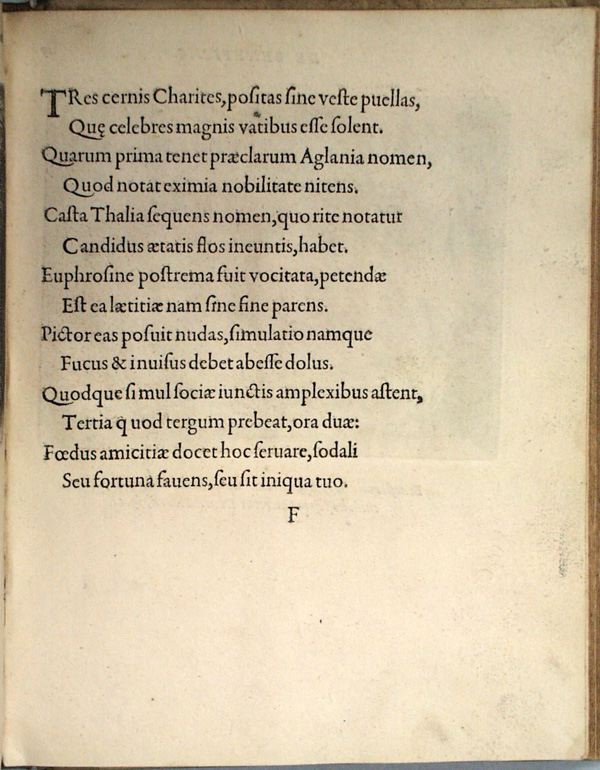 TRes cernis Charites, positas sine veste puellas,
Quę celebres magnis vatibus esse solent.
Quarum prima tenet præclarum Aglania nomen,
Quod notat eximia nobilitate nitens.
Casta Thalia sequens nomen, quo rite notatur
Candidus ætatis flos ineuntis, habet.
Euphrosine postrema fuit vocitata, petendæ
Est ea lætitiæ nam sine fine parens.
Pictor eas posuit nudas, simulatio namque
Fucus & inuisus debet abesse dolus.
Quodque simul sociæ iunctis amplexibus astent,
Tertia quod tergum prebeat, ora duæ:
Fœdus amicitiæ docet hoc seruare, sodali
Seu fortuna fauens, seu sit iniqua tuo.
F